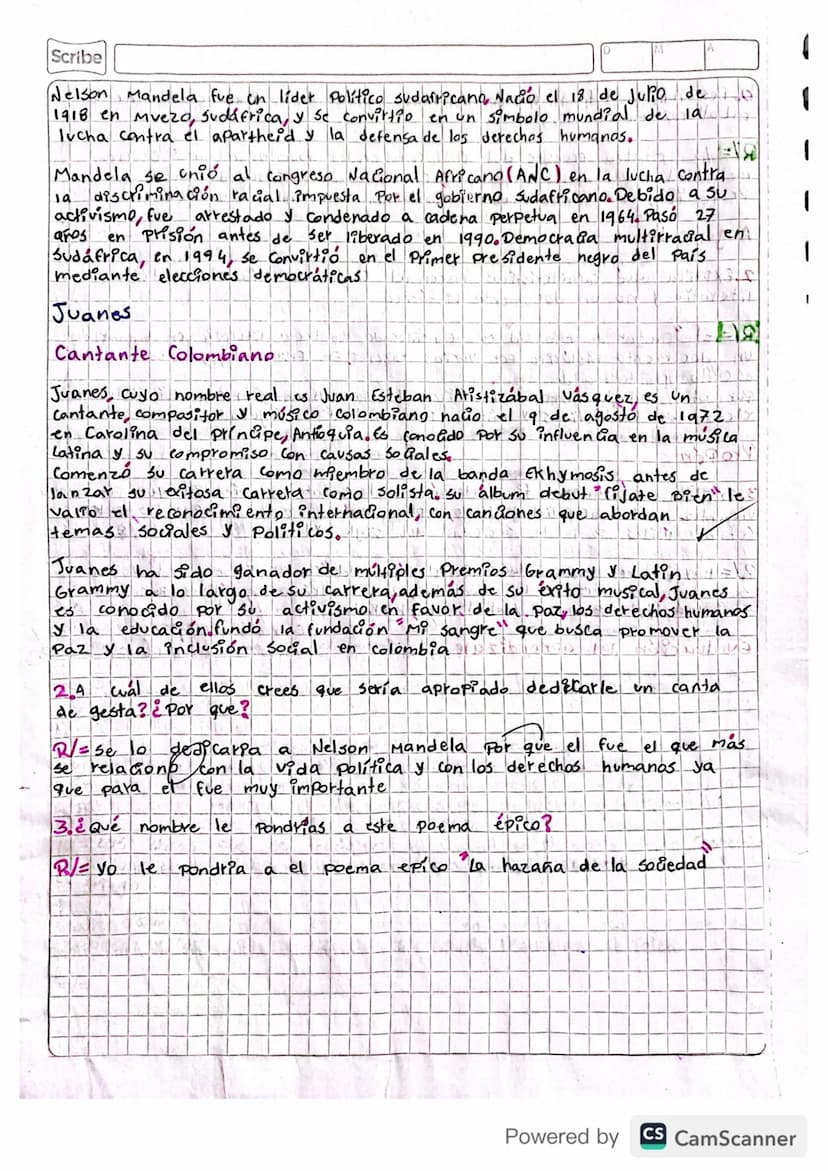 Scribe
D M A
Nelson Mandela fue un líder político sudafricano, Nació el 18 de Julio de
1918 en Mvezo, Sudáfrica, y se convirtió en un símbolo mundial de la
lucha contra el apartheid y la defensa de los derechos humanos.
Mandela se unió al congreso Nacional Africano (ANC) en la lucha contra
la discriminación racial impuesta por el gobierno sudafricano. Debido a su
activismo, fue arrestado y condenado a cadena perpetua en 1964. Pasó 27
años en prisión antes de ser liberado en 1990. Democracia multirracial en
Sudáfrica, en 1994, se convirtió en el primer presidente negro del país
mediante elecciones democráticas
Juanes
Cantante Colombiano
Juanes, cuyo nombre real es Juan Esteban Aristizábal Vásquez, es un
cantante, compositor y músico colombiano nacio el 9 de agosto de 1972
en Carolina del príncipe, Antioquia. Es conocido por su influencia en la música
Latina y su compromiso con causas sociales.
Comenzó su carrera como miembro de la banda Ekhymosis, antes de
lanzar su exitosa carrera como solista. su álbum debut "fijate Bien" le
valió el reconocimiento internacional, con canciones que abordan
temas sociales y políticos.
Juanes ha sido ganador de múltiples Premios Grammy y Latin
Grammy a lo largo de su carrera, además de su éxito musical, Juanes
es conocido por su activismo en favor de la paz, los derechos humanos
y la educación. fundó la fundación "Mi sangre" que busca promover la
Paz y la inclusión social en colombia
2. A cuál de ellos crees que sería apropiado dedicarle un canta
de gesta? ¿Por que?
R/= se lo dedicaria a Nelson Mandela por que el fue el que más
se relacionó con la vida política y con los derechos humanos ya
que para el fue muy importante
3. ¿Qué nombre le pondrías a este poema épico?
R/= yo le pondria a el poema epíco "La hazaña de la sociedad"
Powered by CS CamScanner